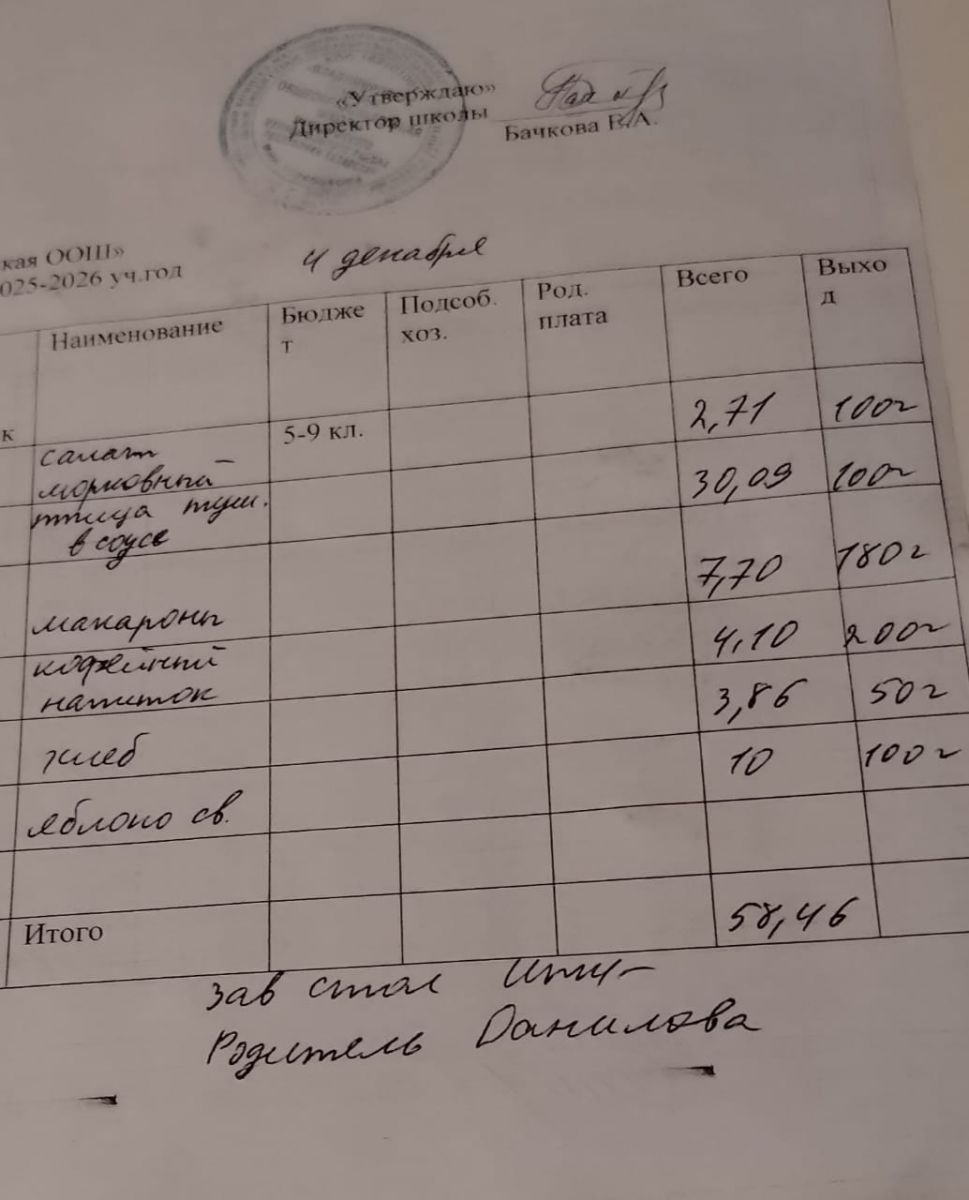 «Утверждаю»
Директор школы
Бачкова В.А.
кая ООШ»
025-2026 уч.год
4 декабря
Наименование
Бюдже
т
Подсоб.
хоз.
Род.
плата
Всего
Выхо
д
к
5-9 кл.
салат
морковный
2,71
100г
птица туш.
в соусе
30,09
100г
макароны
7,70
180г
кофейный
напиток
4,10
200г
хлеб
3,86
50г
яблоко св.
10
100г
Итого
58,46
Зав стол
Родитель Данилова